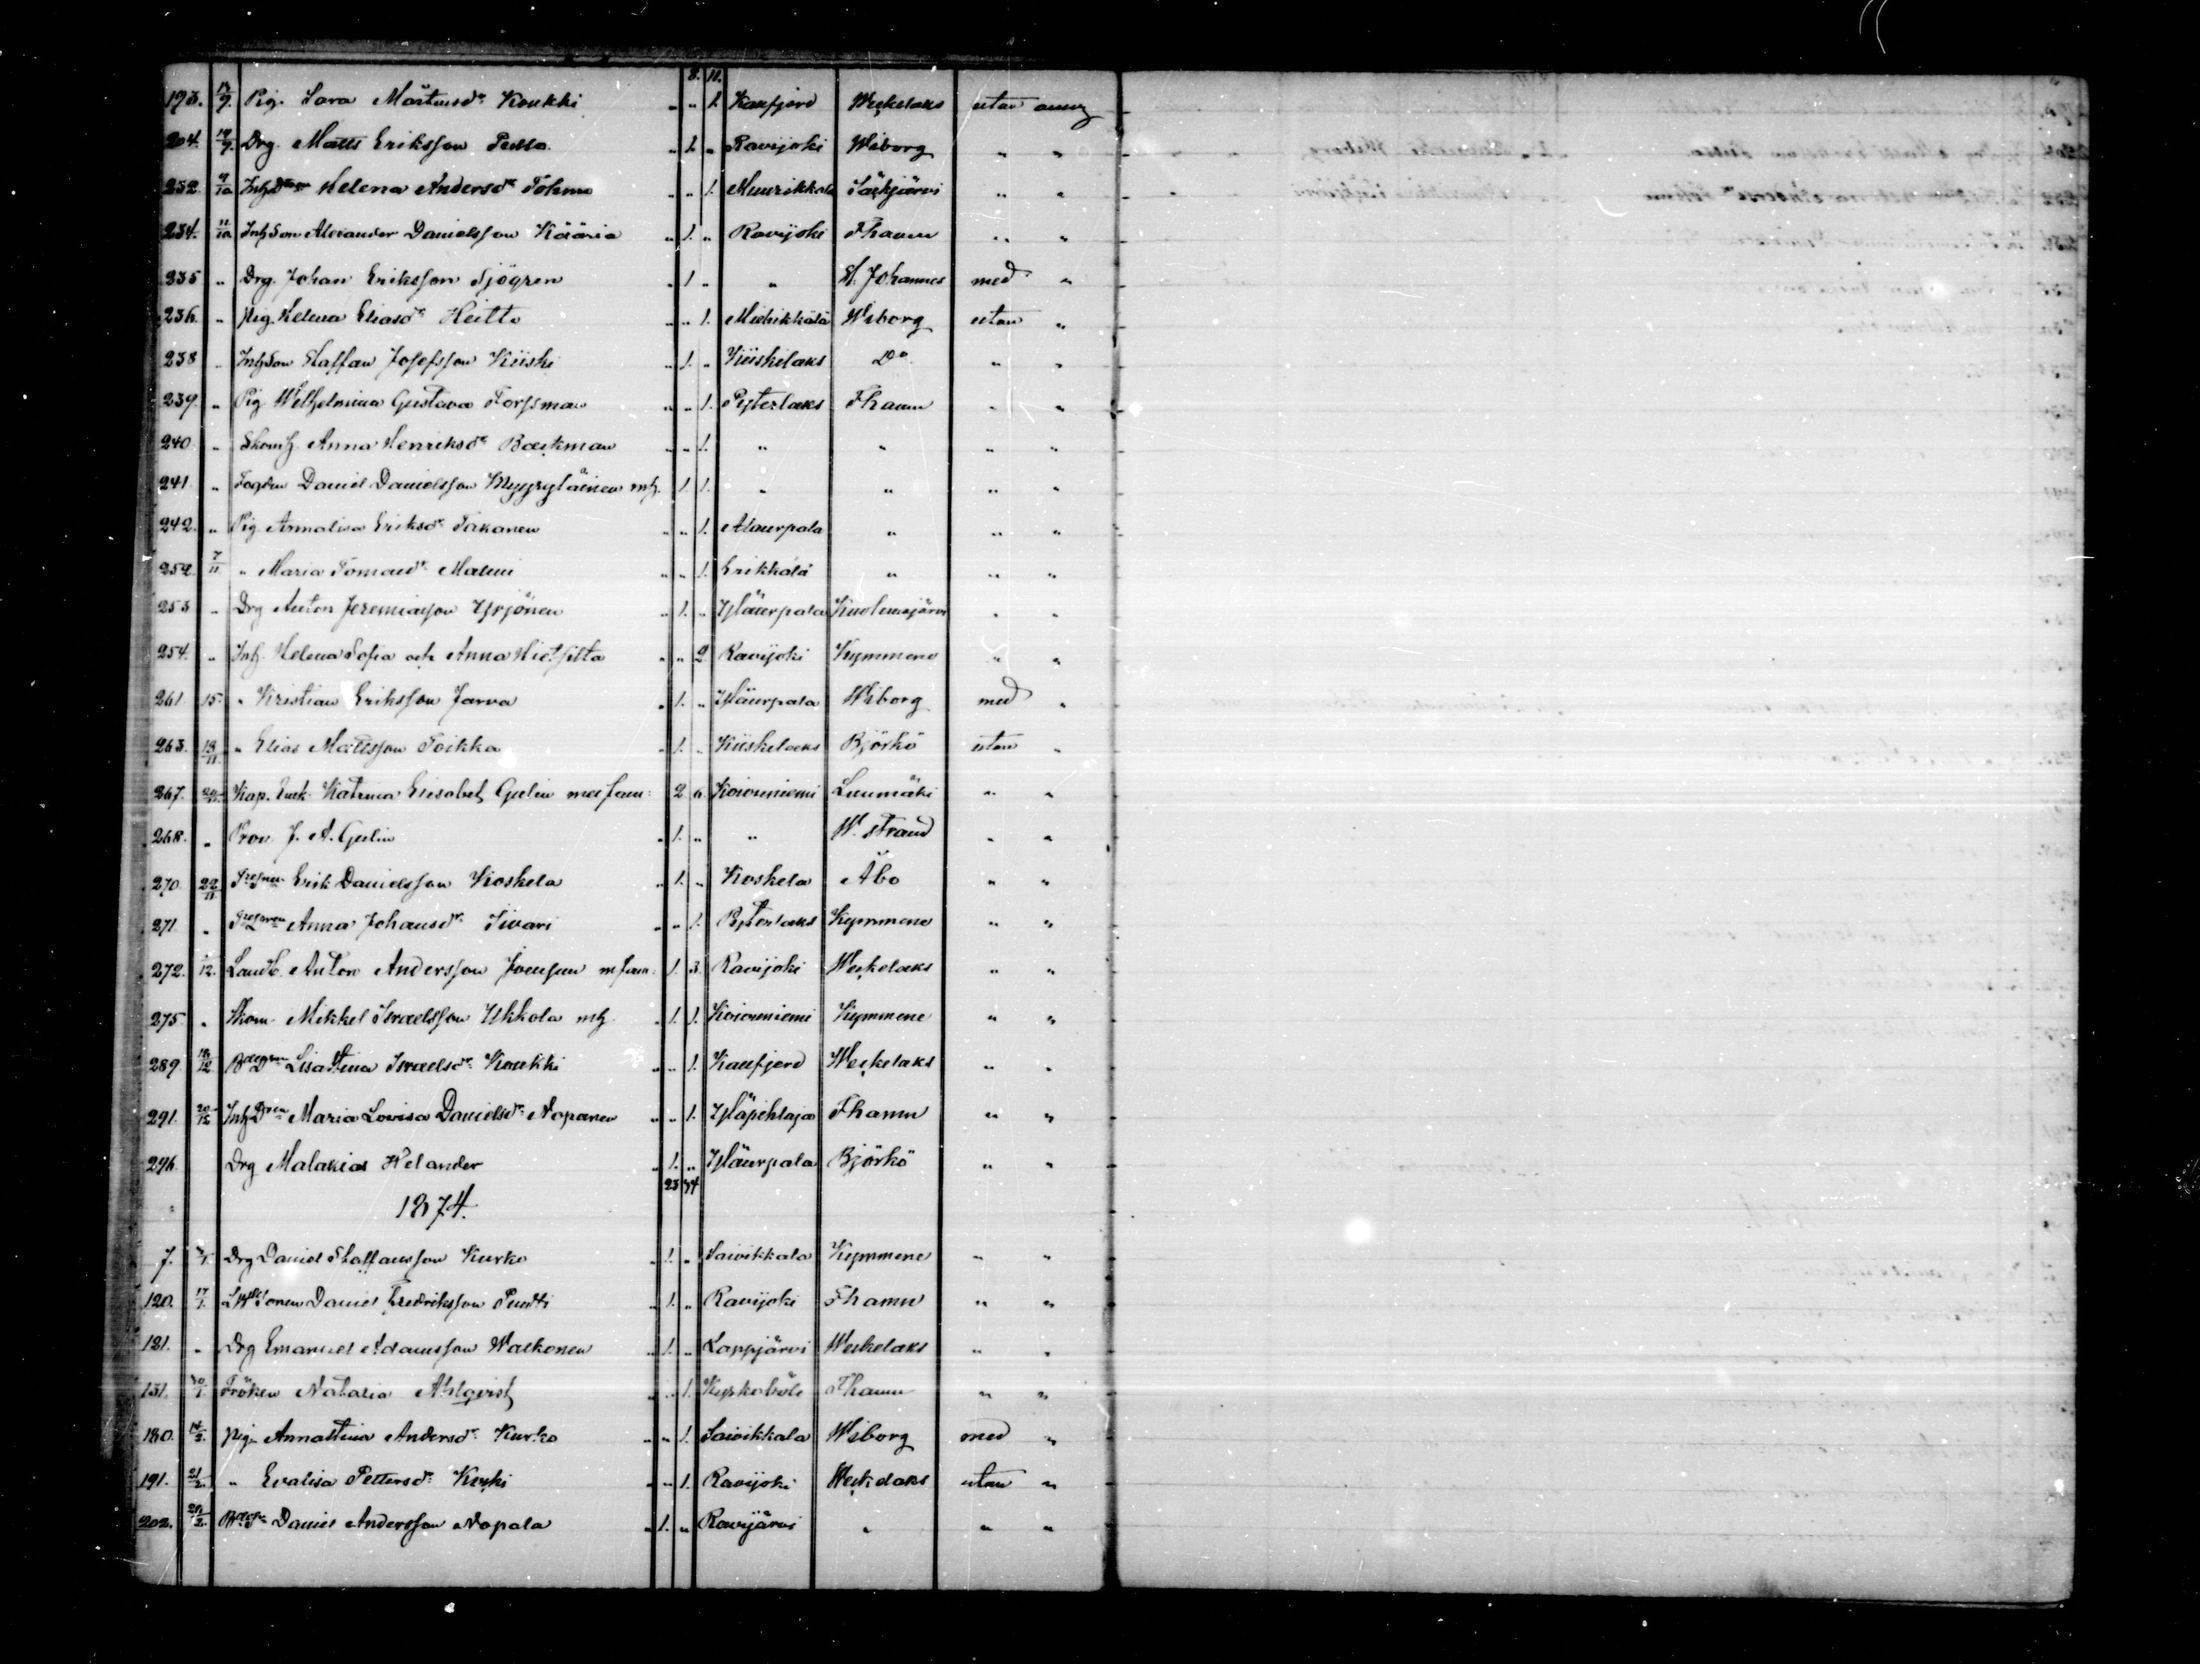 8. 11.
193. 14/9. Pig. Sara Mårtensdr Koukki „ „ 1. Kanfjerd Weckelaks utan anm
204. 19/9. Drg. Matts Eriksson Pello „ 1. „ Ravijoki Wiborg „ „
232. 9/10 Helena Andersdr Tohmo „ „ 1. Muurikkala Säckjärvi „ „
234. 11/10 Inhson Alexander Danielsson Kääriä „ 1. „ Ravijoki Fhamn „ „
235 „ Drg. Johan Eriksson Sjögren „ 1 „ „ St. Johannes med „
236. „ Pig. Helena Eliasdr Heitto „ „ 1. Miehikkälä Wiborg utan „
238 „ Inhson Staffan Josefsson Kiiski „ 1. „ Kiiskilaks Do „ „
239. „ Pig Wilhelmina Gustava Forssman „ „ 1. Pyterlaks Fhamn „ „
240 „ Anna Henriksdr Backman „ „ 1. „ „ „ „
241 „ Daniel Danielsson Myyryläinen mh. 1. 1. „ „ „ „
242. „ Pig. Annalisa Eriksdr Takanen „ „ 1. Alaurpala „ „ „
252 7/11 „ Maria Tomasdr Malmi „ „ 1. Erikkälä „ „ „
253 „ Drg Anton Jeremiasson Yrjönen „ 1. „ Yläurpala Kuolemajärvi „ „
254. „ Inh. Helena Sofia och Anna Hietsilta „ „ 2 Ravijoki Kymmene „ „
261 15 „ Kristian Eriksson Jarva „ 1. „ Yläurpala Wiborg med „
263. 18/11 „ Elias Mattsson Toikka „ 1. „ Kiiskelaks Björkö utan „
267. Kap. Enk. Katrina Elisabet Gulin med fam: 2 6 Koiouniemi Luumäki „ „
268. „ Prov. J. A. Gulin „ 1. „ „ W. strand „ „
270. 22/11 Erik Danielsson Koskela „ 1. „ Koskela Åbo „ „
271 „ Anna Johansdr Sivari „ „ 1. Pyterlaks Kymmene „ „
272. /12. Landb. Anton Andersson m fam: 1. 3. Ravijoki Weckelaks „ „
275 „ Skom. Mikkel Israelsson Ukkola mh. „ 1. 1. Koiouniemi Kymmene „ „
289 18/12 Lisastina Israelsdr Koukki „ „ 1. Kanfjerd Weckelaks „ „
291. 20/12 Maria Lovisa Danielsdr Nopanen „ „ 1. Yläpihlaja Fhamn „ „
296 Drg Malakias Helander „ 1. „ Yläurpala Björkö „ „
23 34
1874.
7. Drg Daniel Staffansson Kurko „ 1. „ Saivikkala Kymmene „ „
120. 17/1. Daniel Fredriksson Pentti „ 1. „ Ravijoki Fhamn „ „
121. „ Drg Emanuel Adamsson Walkonen „ 1. „ Lappjärvi Weckelaks „ „
131. 30/1. Fröken Natalia Ahlqvist „ „ 1. Kyrkoböle Fhamn „ „
180. 14/2. Pig. Annastina Andersdr Kurko „ „ 1. Saivikkala Wiborg med „
191. 21/2. „ Evalisa Pettersdr „ „ 1. Ravijoki Weckelaks utan „
202. Daniel Andersson Nopala „ 1. „ Ravijärvi „ „ „